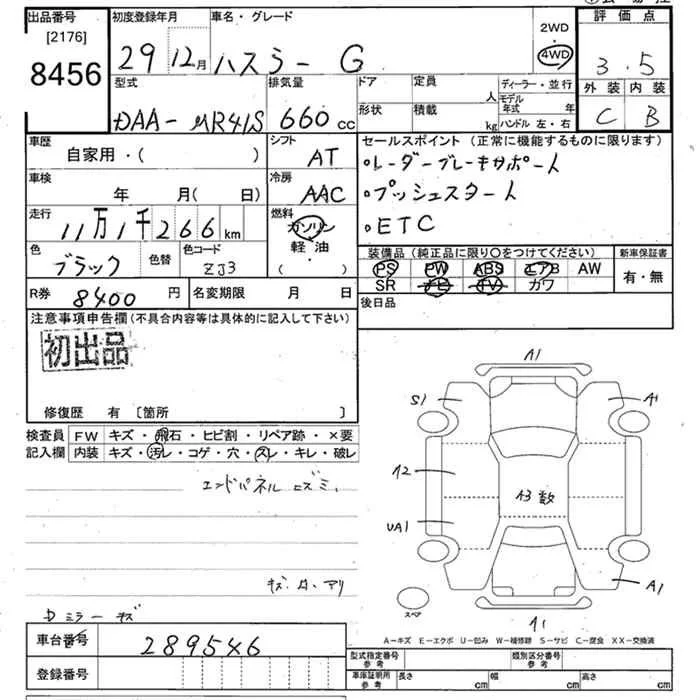 出品番号
[2176]
8456
初度登録年月
29 12月
車名・グレード
ハスラー G
2WD
4WD
評価点
3.5
外装 内装
C B
型式
DAA-MR41S
排気量
660 cc
ドア
形状
定員 人
積載 kg
ディーラー・並行
モデル年式 年
ハンドル 左・右
車歴
自家用・( )
シフト
AT
セールスポイント (正常に機能するものに限ります)
・レーダーブレーキサポート
・プッシュスタート
・ETC
車検
年 月( 日)
冷房
AAC
走行
11万1千266km
燃料
ガソリン
軽・油
( )
色
ブラック
色替
色コード
ZJ3
装備品 (純正品に限り○をつけてください)
PS PW ABS エアB AW
SR ナビ TV カワ
新車保証書
有・無
R券
8400円
名変期限 月 日
後日品
注意事項申告欄(不具合内容等は具体的に記入して下さい)
初出品
修復歴 有 〔箇所 〕
検査員
記入欄
FW キズ・飛石・ヒビ割・リペア跡・×要
内装 キズ・汚レ・コゲ・穴・スレ・キレ・破レ
エンドパネル ヒズミ.
キズ・凹・アリ
Dミラーキズ
A1
S1
A1
A2
A3 数
UA1
A1
A1
スペア
A-キズ E-エクボ U-凹み W-補修跡 S-サビ C-腐食 XX-交換済
車台番号
289546
登録番号
型式指定番号
参考
類別区分番号
参考
車庫証明用
参考
長さ cm
幅 cm
高さ cm